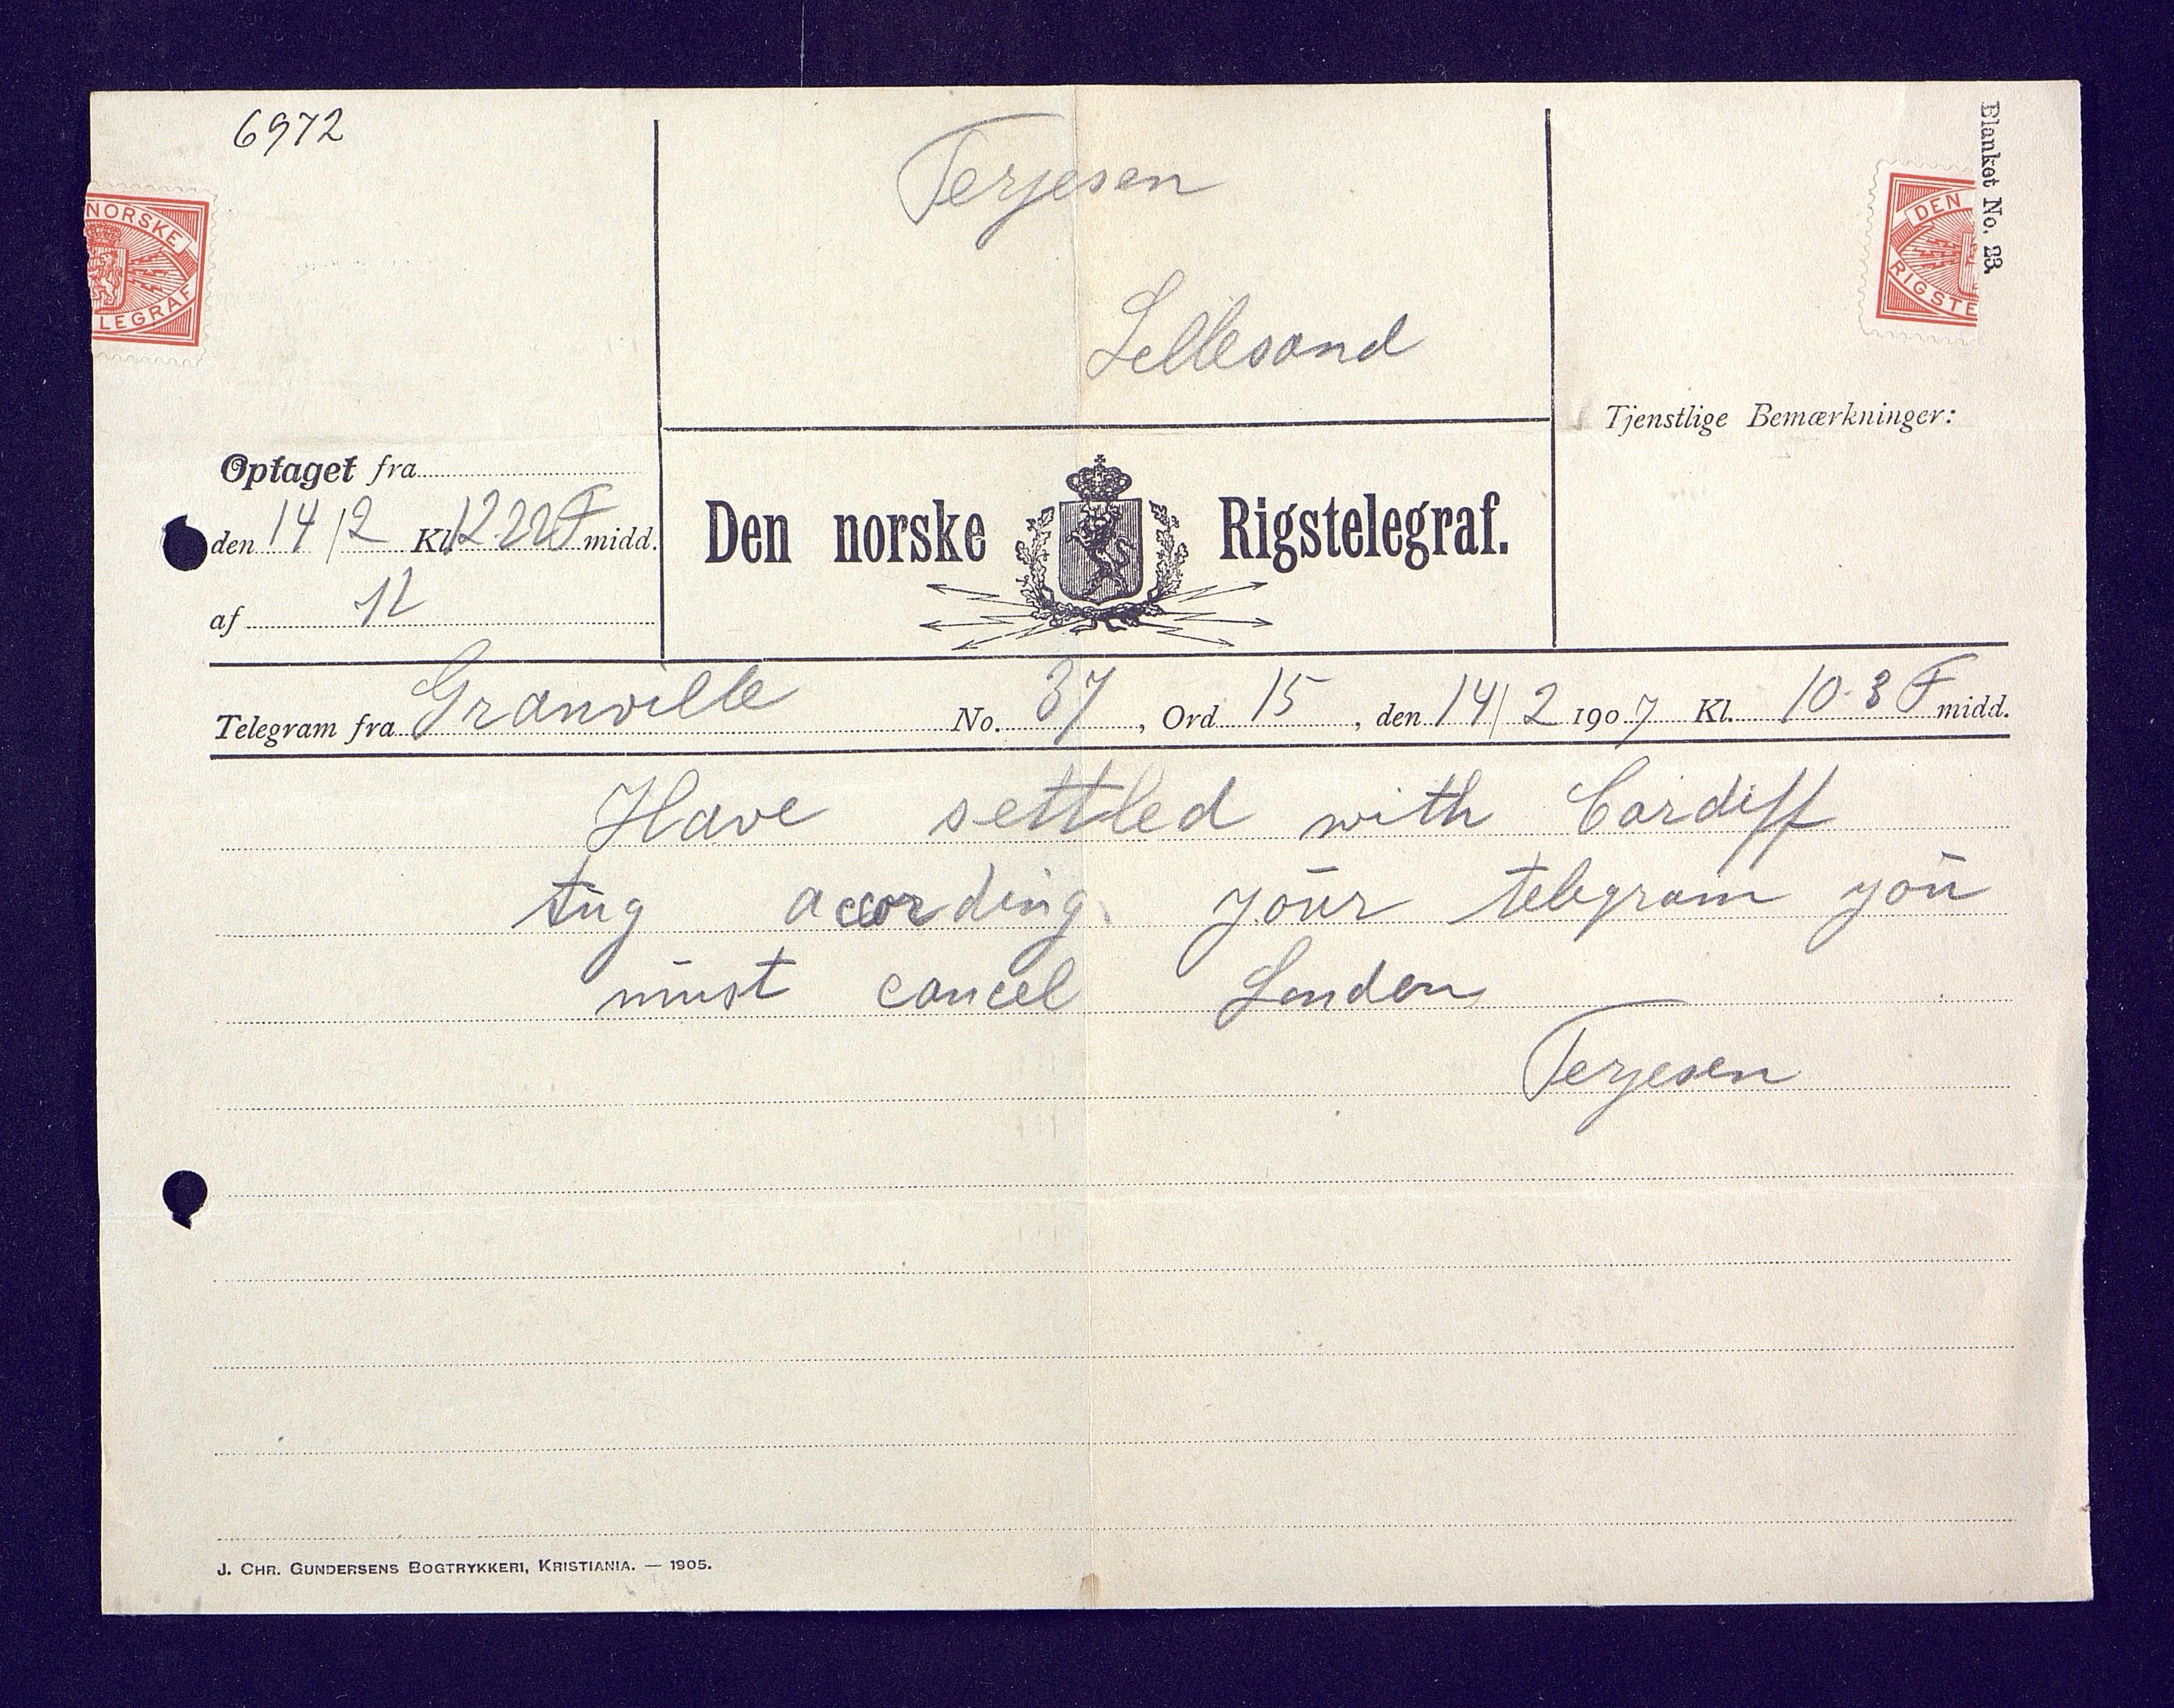 6972
Terjesen
Lillesand
Blanket No. 23.
NORSKE
LEGRAF
DEN
RIGSTE
Tjenstlige Bemærkninger:
Optaget fra
den 14/2 Kl. 12.22 F midd.
af
Den norske Rigstelegraf.
Telegram fra Granville No. 37, Ord 15, den 14/2 1907 Kl. 10.3 F midd.
Have settled with Cardiff
tug according your telegram you
must cancel London
Terjesen
J. CHR. GUNDERSENS BOGTRYKKERI, KRISTIANIA. — 1905.